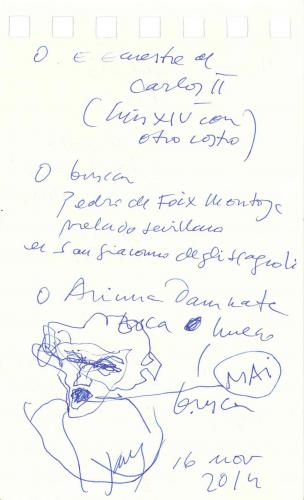 O E Ecuestre de
Carlos II
(Luis XIV con
otro rostro)
O busca
Pedro de Foix Montoya
prelado sevillano
en San giacomo degli spagnoli
O Anima Dannata
boca o hueco
MAi
busca
16 nov
2014